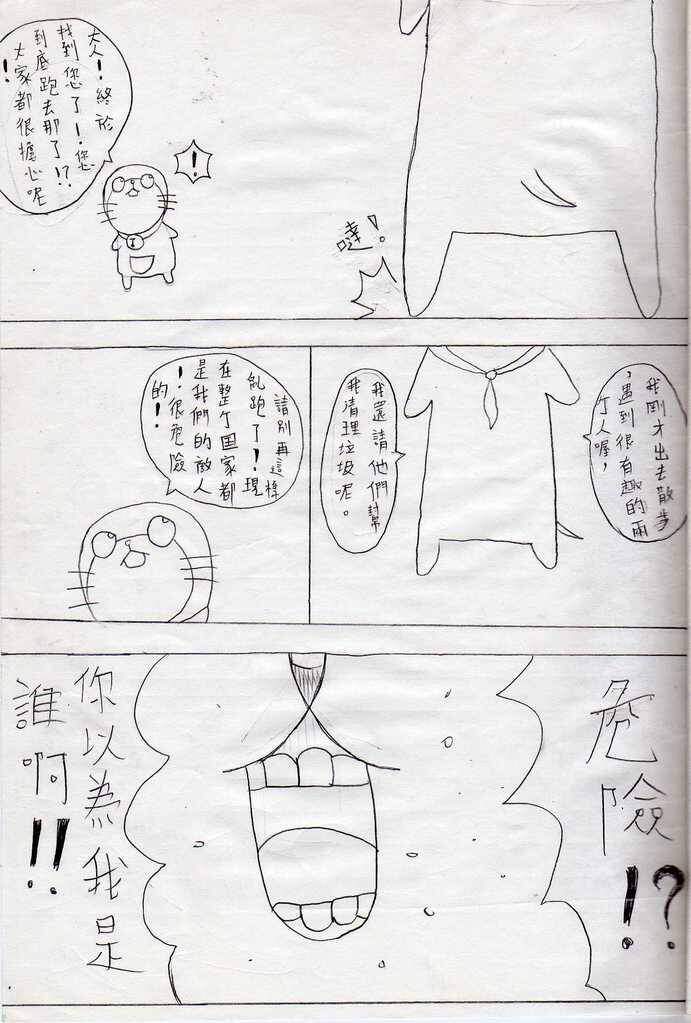 噠!
!
大人!終於
找到您了!您
到底跑去那了!?
大家都很擔心呢
!
我剛才出去散步
，遇到很有趣的兩
个人喔，
我還請他們幫
我清理垃圾呢。
請別再這樣
亂跑了!現
在整个国家都
是我們的敵人
!很危險
的!
危險!?
你以為我是
誰啊!!